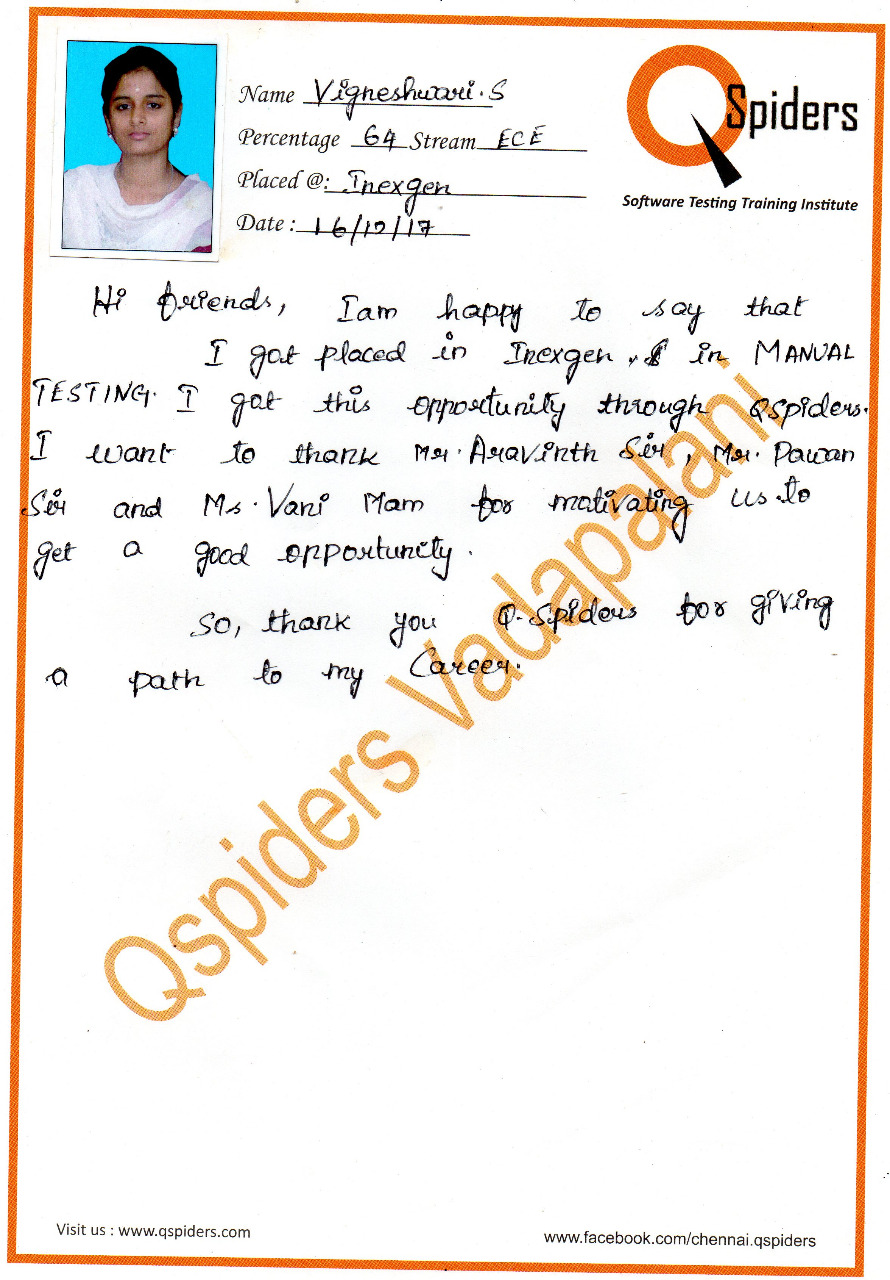 Name Vigneshwari.S
Percentage 64 Stream ECE
Placed @: Inexgen
Date : 16/12/17
QSpiders
Software Testing Training Institute
Hi friends, I am happy to say that
I got placed in Inexgen, in MANUAL
TESTING. I got this opportunity through QSpiders.
I want to thank Mr. Aravinth Sir, Mr. Pawan
Sir and Ms. Vani Mam for motivating us to
get a good opportunity.
So, thank you Q-Spiders for giving
a path to my Career.
Qspiders Vadapalani
Visit us : www.qspiders.com
www.facebook.com/chennai.qspiders